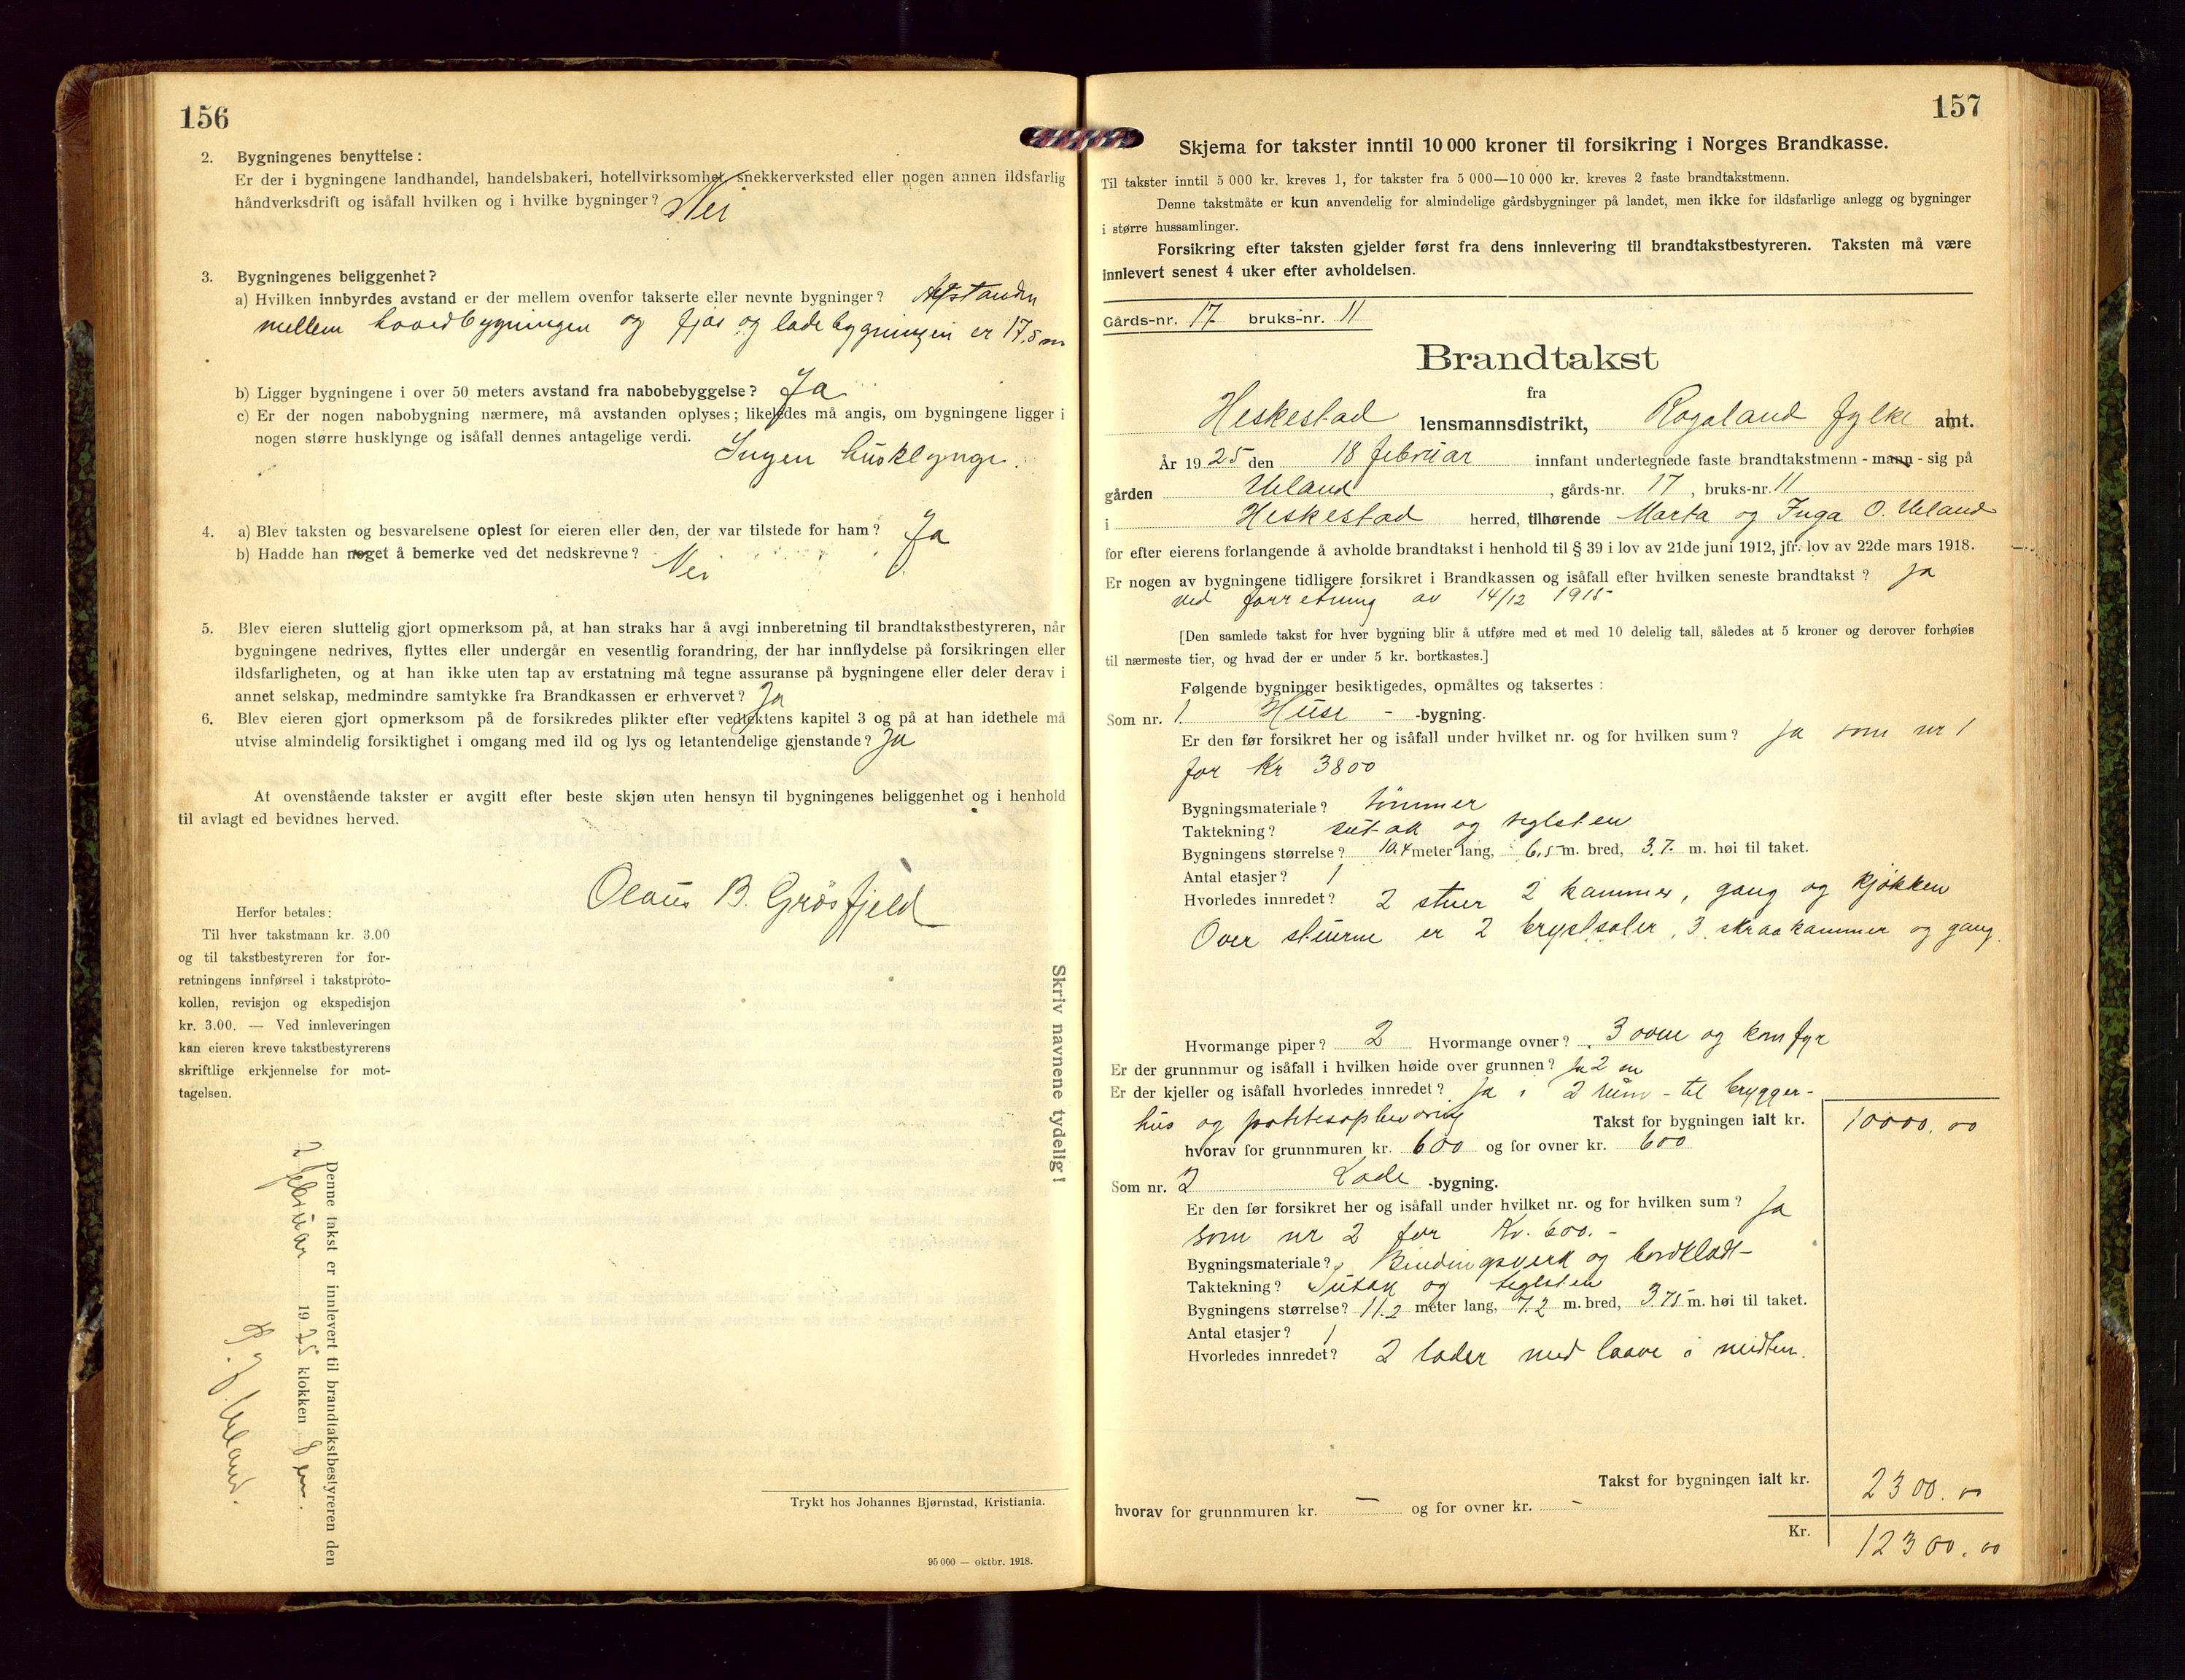 156
2. Bygningenes benyttelse :
Er der i bygningene landhandel, handelsbakeri, hotellvirksomhet, snekkerverksted eller nogen annen ildsfarlig
håndverksdrift og isåfall hvilken og i hvilke bygninger? Nei
3. Bygningenes beliggenhet?
a) Hvilken innbyrdes avstand er der mellem ovenfor takserte eller nevnte bygninger? Afstanden
mellem hovedbygningen og fjøs og ladebygningen er 17,5 m
b) Ligger bygningene i over 50 meters avstand fra nabobebyggelse? Ja
c) Er der nogen nabobygning nærmere, må avstanden oplyses; likeledes må angis, om bygningene ligger i
nogen større husklynge og isåfall dennes antagelige verdi. Ingen husklynge.
4. a) Blev taksten og besvarelsene oplest for eieren eller den, der var tilstede for ham? Ja
b) Hadde han noget å bemerke ved det nedskrevne? Nei
5. Blev eieren sluttelig gjort opmerksom på, at han straks har å avgi innberetning til brandtakstbestyreren, når
bygningene nedrives, flyttes eller undergår en vesentlig forandring, der har innflydelse på forsikringen eller
ildsfarligheten, og at han ikke uten tap av erstatning må tegne assuranse på bygningene eller deler derav i
annet selskap, medmindre samtykke fra Brandkassen er erhvervet? Ja
6. Blev eieren gjort opmerksom på de forsikredes plikter efter vedtektens kapitel 3 og på at han idethele må
utvise almindelig forsiktighet i omgang med ild og lys og letantendelige gjenstande? Ja
At ovenstående takster er avgitt efter beste skjøn uten hensyn til bygningenes beliggenhet og i henhold
til avlagt ed bevidnes herved.
Olaus B. Grøsfjeld
Herfor betales:
Til hver takstmann kr. 3.00
og til takstbestyreren for for-
retningens innførsel i takstproto-
kollen, revisjon og ekspedisjon
kr. 3.00. — Ved innleveringen
kan eieren kreve takstbestyrerens
skriftlige erkjennelse for mot-
tagelsen.
Skriv navnene tydelig!
Denne takst er innlevert til brandtakstbestyreren den
2 februar 1925 klokken 8 em.
Ueland.
Trykt hos Johannes Bjørnstad, Kristiania.
95 000 — oktbr. 1918.
157
Skjema for takster inntil 10 000 kroner til forsikring i Norges Brandkasse.
Til takster inntil 5 000 kr. kreves 1, for takster fra 5 000—10 000 kr. kreves 2 faste brandtakstmenn.
Denne takstmåte er kun anvendelig for almindelige gårdsbygninger på landet, men ikke for ildsfarlige anlegg og bygninger
i større hussamlinger.
Forsikring efter taksten gjelder først fra dens innlevering til brandtakstbestyreren. Taksten må være
innlevert senest 4 uker efter avholdelsen.
Gårds-nr. 17 bruks-nr. 11
Brandtakst
fra
Heskestad lensmannsdistrikt, Rogaland fylke amt.
År 1925 den 18 februar innfant undertegnede faste brandtakstmenn - mann - sig på
gården Ueland, gårds-nr. 17, bruks-nr. 11
i Heskestad herred, tilhørende Marta og Inga O. Ueland
for efter eierens forlangende å avholde brandtakst i henhold til § 39 i lov av 21de juni 1912, jfr. lov av 22de mars 1918.
Er nogen av bygningene tidligere forsikret i Brandkassen og isåfall efter hvilken seneste brandtakst? Ja
ved forretning av 14/12 1915
[Den samlede takst for hver bygning blir å utføre med et med 10 delelig tall, således at 5 kroner og derover forhøies
til nærmeste tier, og hvad der er under 5 kr. bortkastes.]
Følgende bygninger besiktigedes, opmåltes og taksertes :
Som nr. 1 Huse - -bygning.
Er den før forsikret her og isåfall under hvilket nr. og for hvilken sum? Ja som nr 1
for Kr 3800
Bygningsmateriale? tømmer
Taktekning? sutak og teglsten
Bygningens størrelse? 10.4 meter lang, 6.5 m. bred, 3.7. m. høi til taket.
Antal etasjer? 1
Hvorledes innredet? 2 stuer 2 kammer, gang og kjøkken
Over stuerne er 2 brystsaler, 3 skraakammer og gang.
Hvormange piper? 2 Hvormange ovner? 3 ovne og komfyr
Er der grunnmur og isåfall i hvilken høide over grunnen? Ja 2 m
Er der kjeller og isåfall hvorledes innredet? Ja i 2 rum - til brygger-
hus og potetesopbevaring Takst for bygningen ialt kr. 10000.00
hvorav for grunnmuren kr. 600 og for ovner kr. 600
Som nr. 2 Lade -bygning.
Er den før forsikret her og isåfall under hvilket nr. og for hvilken sum? Ja
som nr 2 for Kr. 600.-
Bygningsmateriale? Bindingsverk og bordklædt-
Taktekning? Sutak og teglsten
Bygningens størrelse? 11.2 meter lang, 7.2 m. bred, 3.75 m. høi til taket.
Antal etasjer? 1
Hvorledes innredet? 2 lader med laave i midten.
Takst for bygningen ialt kr. 2300.00
hvorav for grunnmuren kr. - og for ovner kr. -
Kr. 12300.00